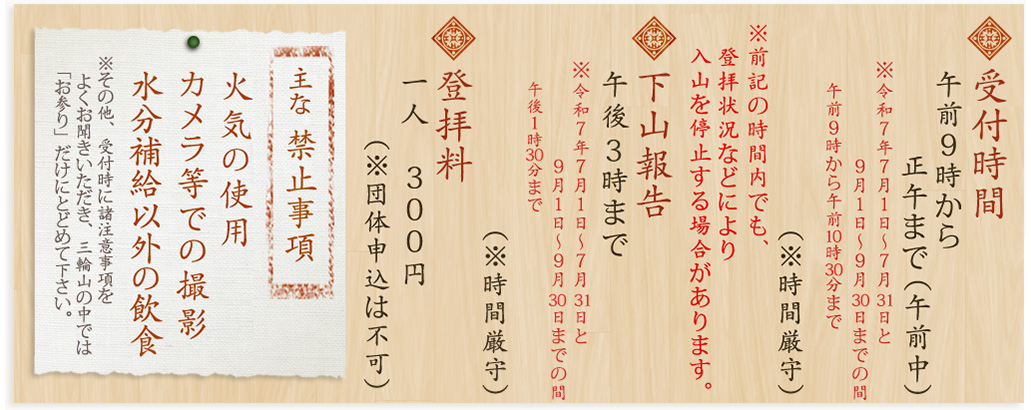 受付時間
午前９時から
正午まで（午前中）
※令和７年７月１日～７月31日と
９月１日～９月30日までの間
午前９時から午前10時30分まで
（※時間厳守）
※前記の時間内でも、
登拝状況などにより
入山を停止する場合があります。
下山報告
午後３時まで
※令和７年７月１日～７月31日と
９月１日～９月30日までの間
午後１時30分まで
（※時間厳守）
登拝料
一人　３００円
（※団体申込は不可）
主な 禁止事項
火気の使用
カメラ等での撮影
水分補給以外の飲食
※その他、受付時に諸注意事項を
よくお聞きいただき、三輪山の中では
「お参り」だけにとどめて下さい。